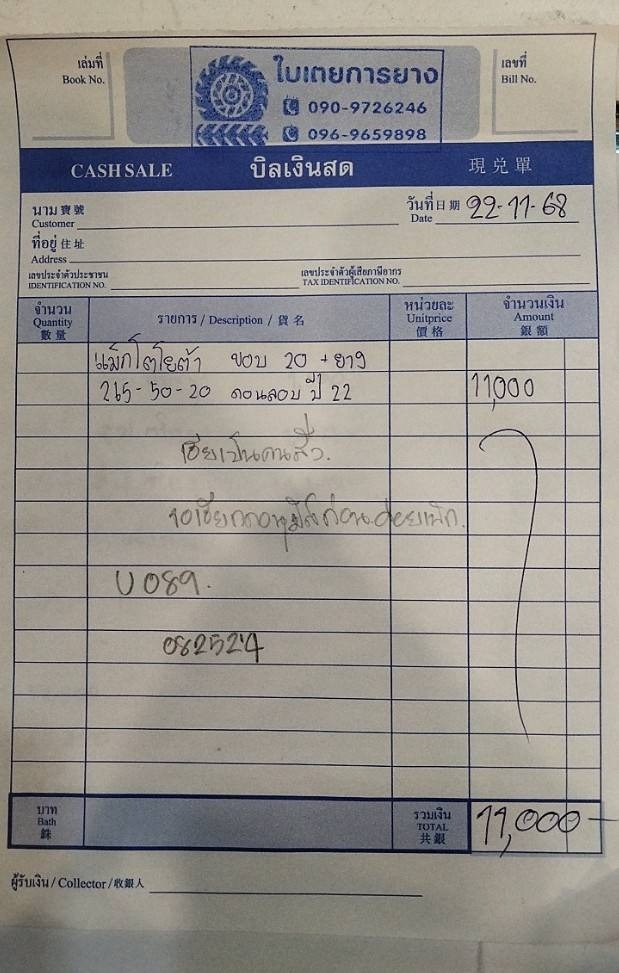 เล่มที่
Book No.
ใบเตยการยาง
090-9726246
096-9659898
เลขที่
Bill No.
CASH SALE บิลเงินสด 現兌單
นาม 寶號
Customer
วันที่ 日期 22-11-68
Date
ที่อยู่ 住址
Address
เลขประจำตัวประชาชน
IDENTIFICATION NO.
เลขประจำตัวผู้เสียภาษีอากร
TAX IDENTIFICATION NO.
จำนวน
Quantity
數量
รายการ / Description / 貨名
หน่วยละ
Unitprice
價格
จำนวนเงิน
Amount
銀額
แม็กโตโยต้า ขอบ 20 + ยาง
265-50-20 ดอนลอบ ปี 22 11,000
เฮียเป็นคนสั่ง.
U 089.
082524
บาท
Bath
銖
รวมเงิน
TOTAL
共銀
11,000
ผู้รับเงิน / Collector / 收銀人